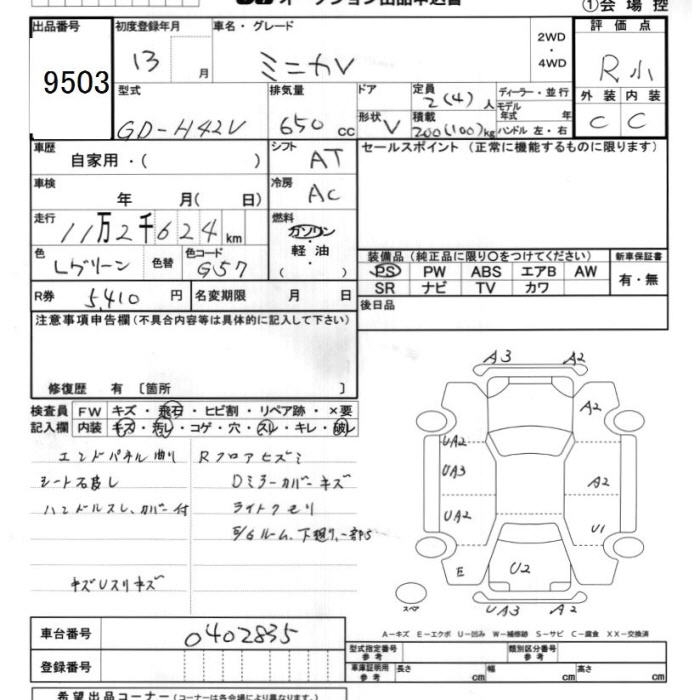 オークション出品申込書
①会場控
出品番号
9503
初度登録年月
13
月
車名・グレード
ミニカV
2WD
・
4WD
評価点
R小
外装 内装
C C
型式
GD-H42V
排気量
650 cc
ドア
形状 V
定員
2(4)人
積載
200(100)kg
ディーラー・並行
モデル
年式 年
ハンドル 左・右
車歴
自家用・( )
シフト
AT
セールスポイント(正常に機能するものに限ります)
車検
年 月( 日)
冷房
AC
走行
11万2千624km
燃料
ガソリン
・
軽油
・
( )
色
Lグリーン
色替
色コード
G57
装備品(純正品に限り○をつけてください)
PS PW ABS エアB AW
SR ナビ TV カワ
新車保証書
有・無
R券 5,410 円
名変期限 月 日
後日品
注意事項申告欄(不具合内容等は具体的に記入して下さい)
修復歴 有〔箇所 〕
検査員
記入欄
FW キズ・飛石・ヒビ割・リペア跡・×要
内装 キズ・汚レ・コゲ・穴・スレ・キレ・破レ
エンドパネル曲り Rフロアヒズミ
シート破レ Dミラーカバーキズ
ハンドルスレ、カバー付 ライトクモリ
E/Gルーム、下廻り、一部S
キズUスリキズ
A3 A2
A2
UA2
UA3
A2
UA2
U1
E
U2
スペア
UA3 A2
車台番号 0402835
A－キズ E－エクボ U－凹み W－補修跡 S－サビ C－腐食 XX－交換済
登録番号
型式指定番号
参考
類別区分番号
参考
車庫証明用
参考
長さ cm
幅 cm
高さ cm
希望出品コーナー(コーナーは各会場により異なります)